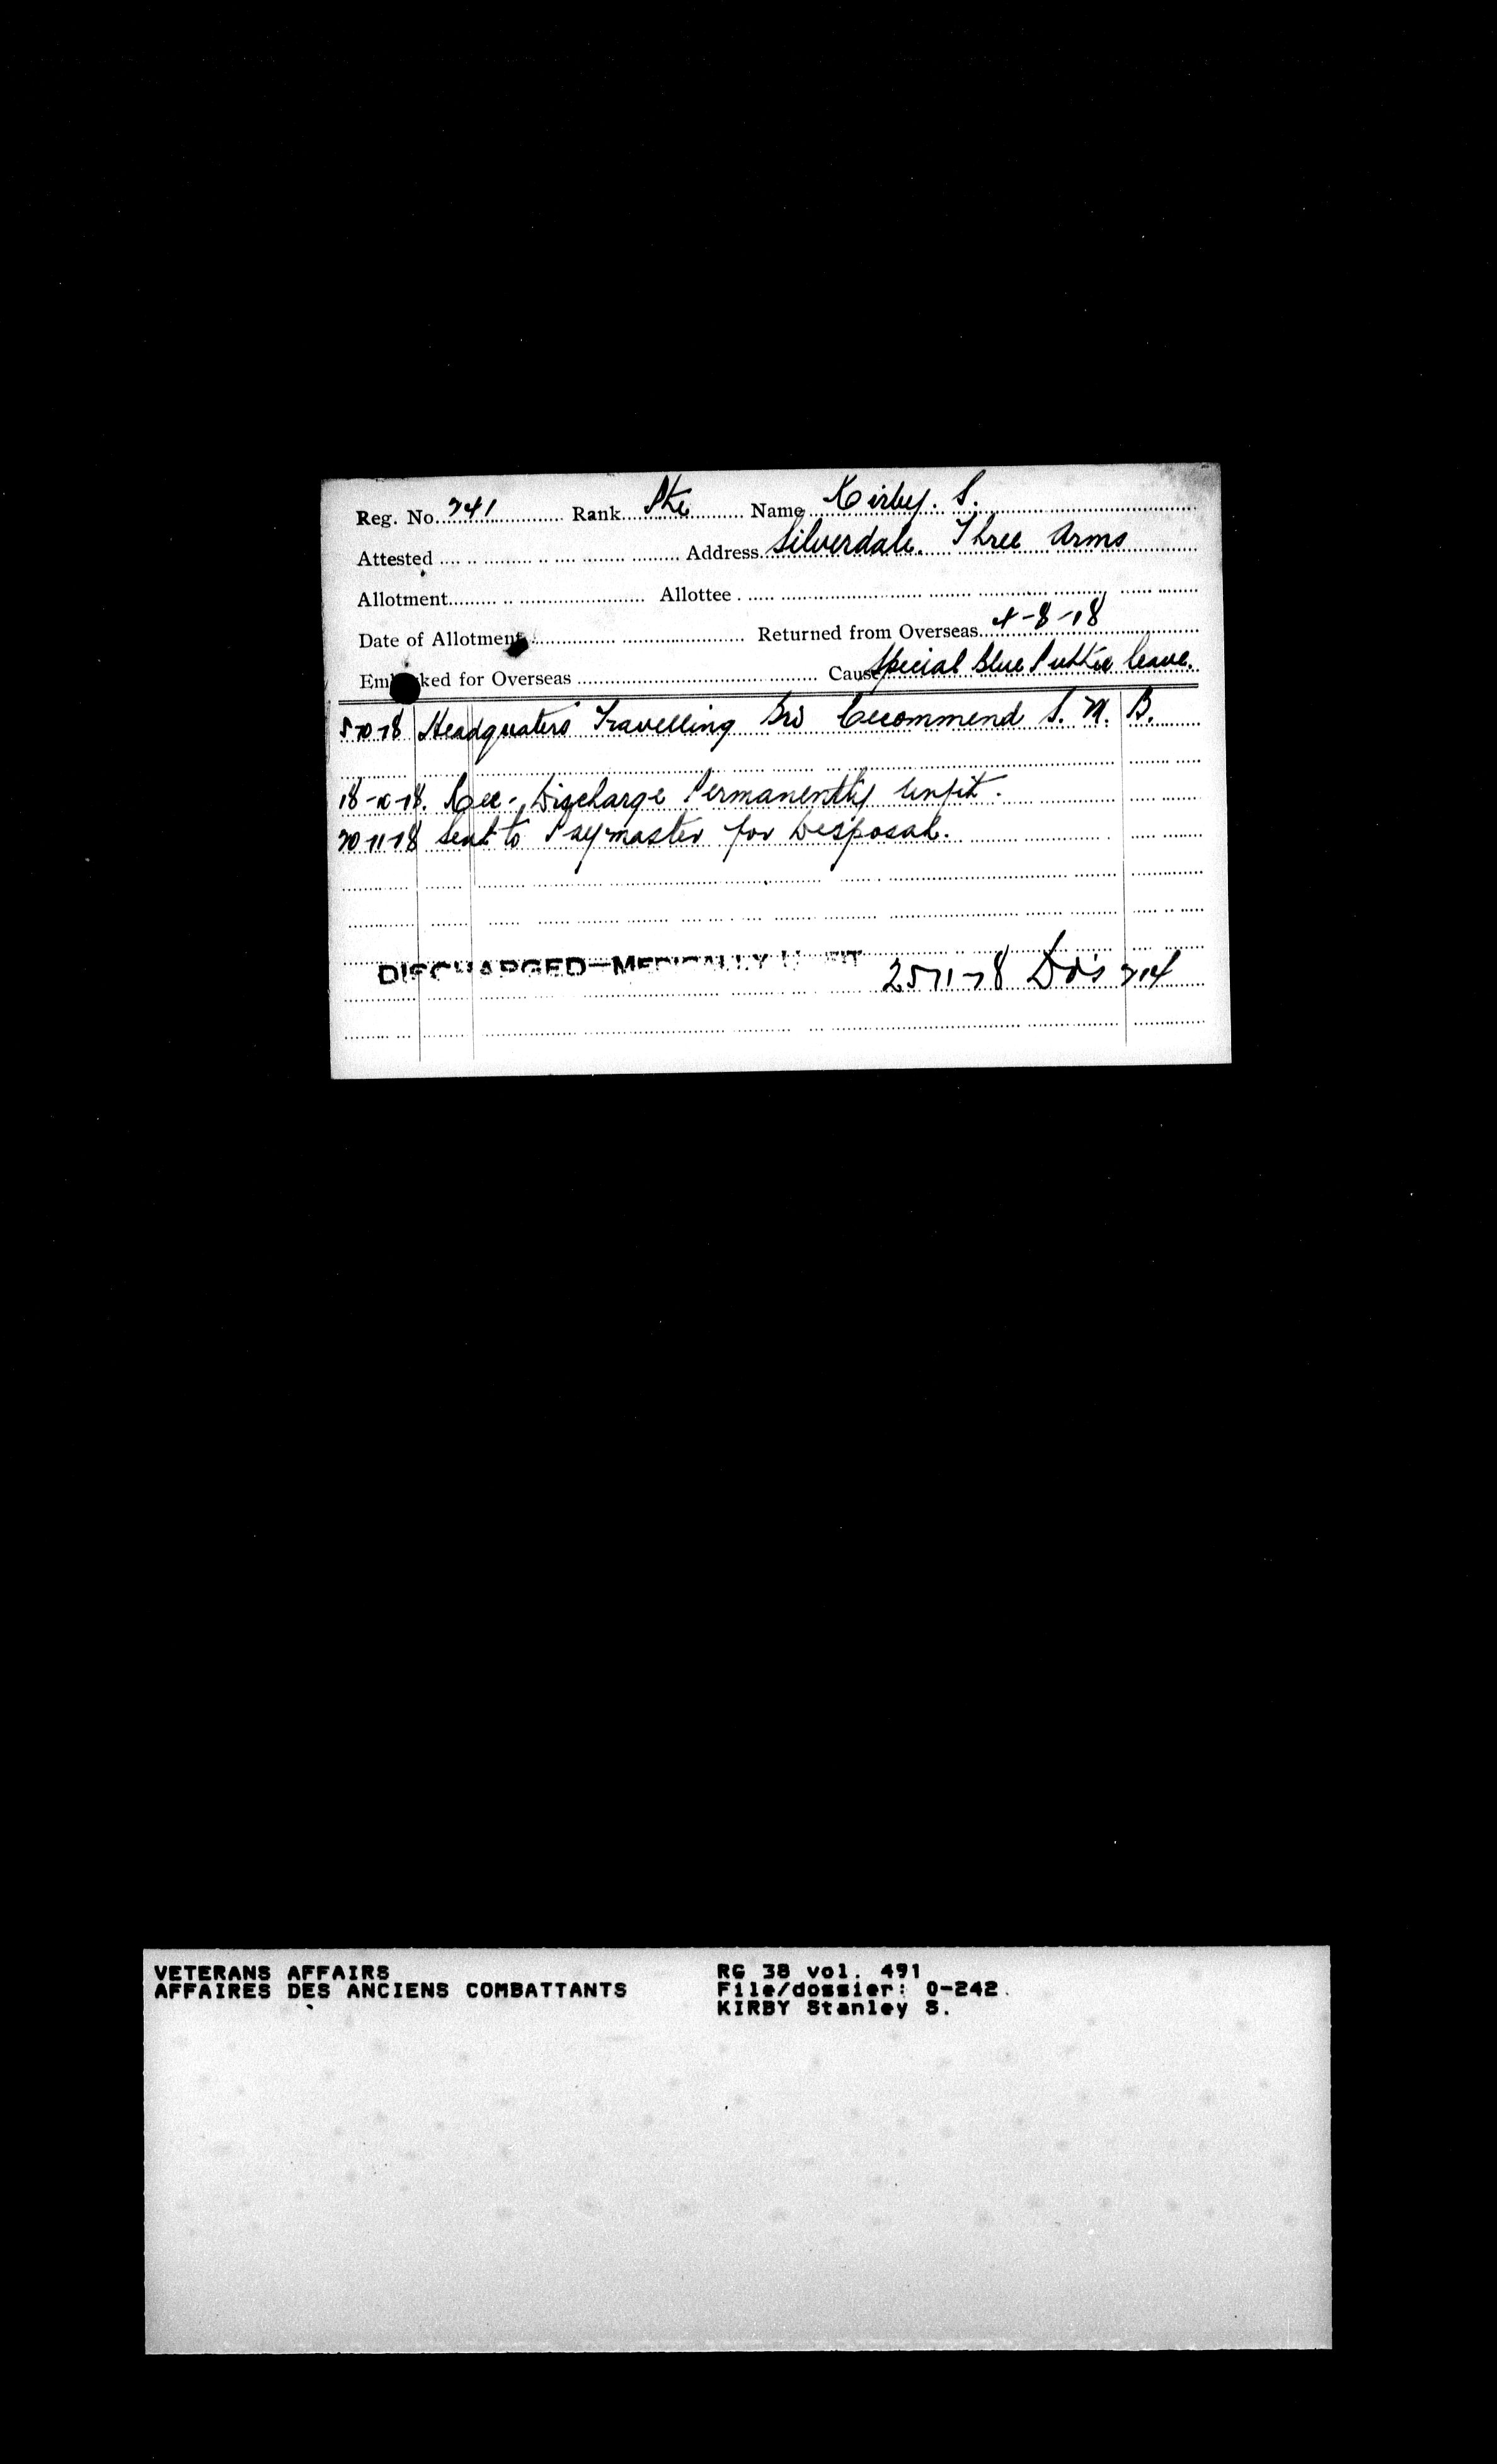 Reg. No. 241 Rank Pte Name Kirby. S.
Attested Address Silverdale. Three Arms
Allotment Allottee
Date of Allotment Returned from Overseas 4-8-18
Embarked for Overseas Cause Special Blue Puttee leave.
5-10-18 Headquaters Travelling Recommend S. M. B.
18-10-18. Rec. Discharge Permanently Unfit.
20-11-18 Sent to Paymaster for Disposal.
DISCHARGED—MEDICALLY UNFIT 25-11-18
VETERANS AFFAIRS
AFFAIRES DES ANCIENS COMBATTANTS
RG 38 vol. 491
File/dossier: 0-242
KIRBY Stanley S.